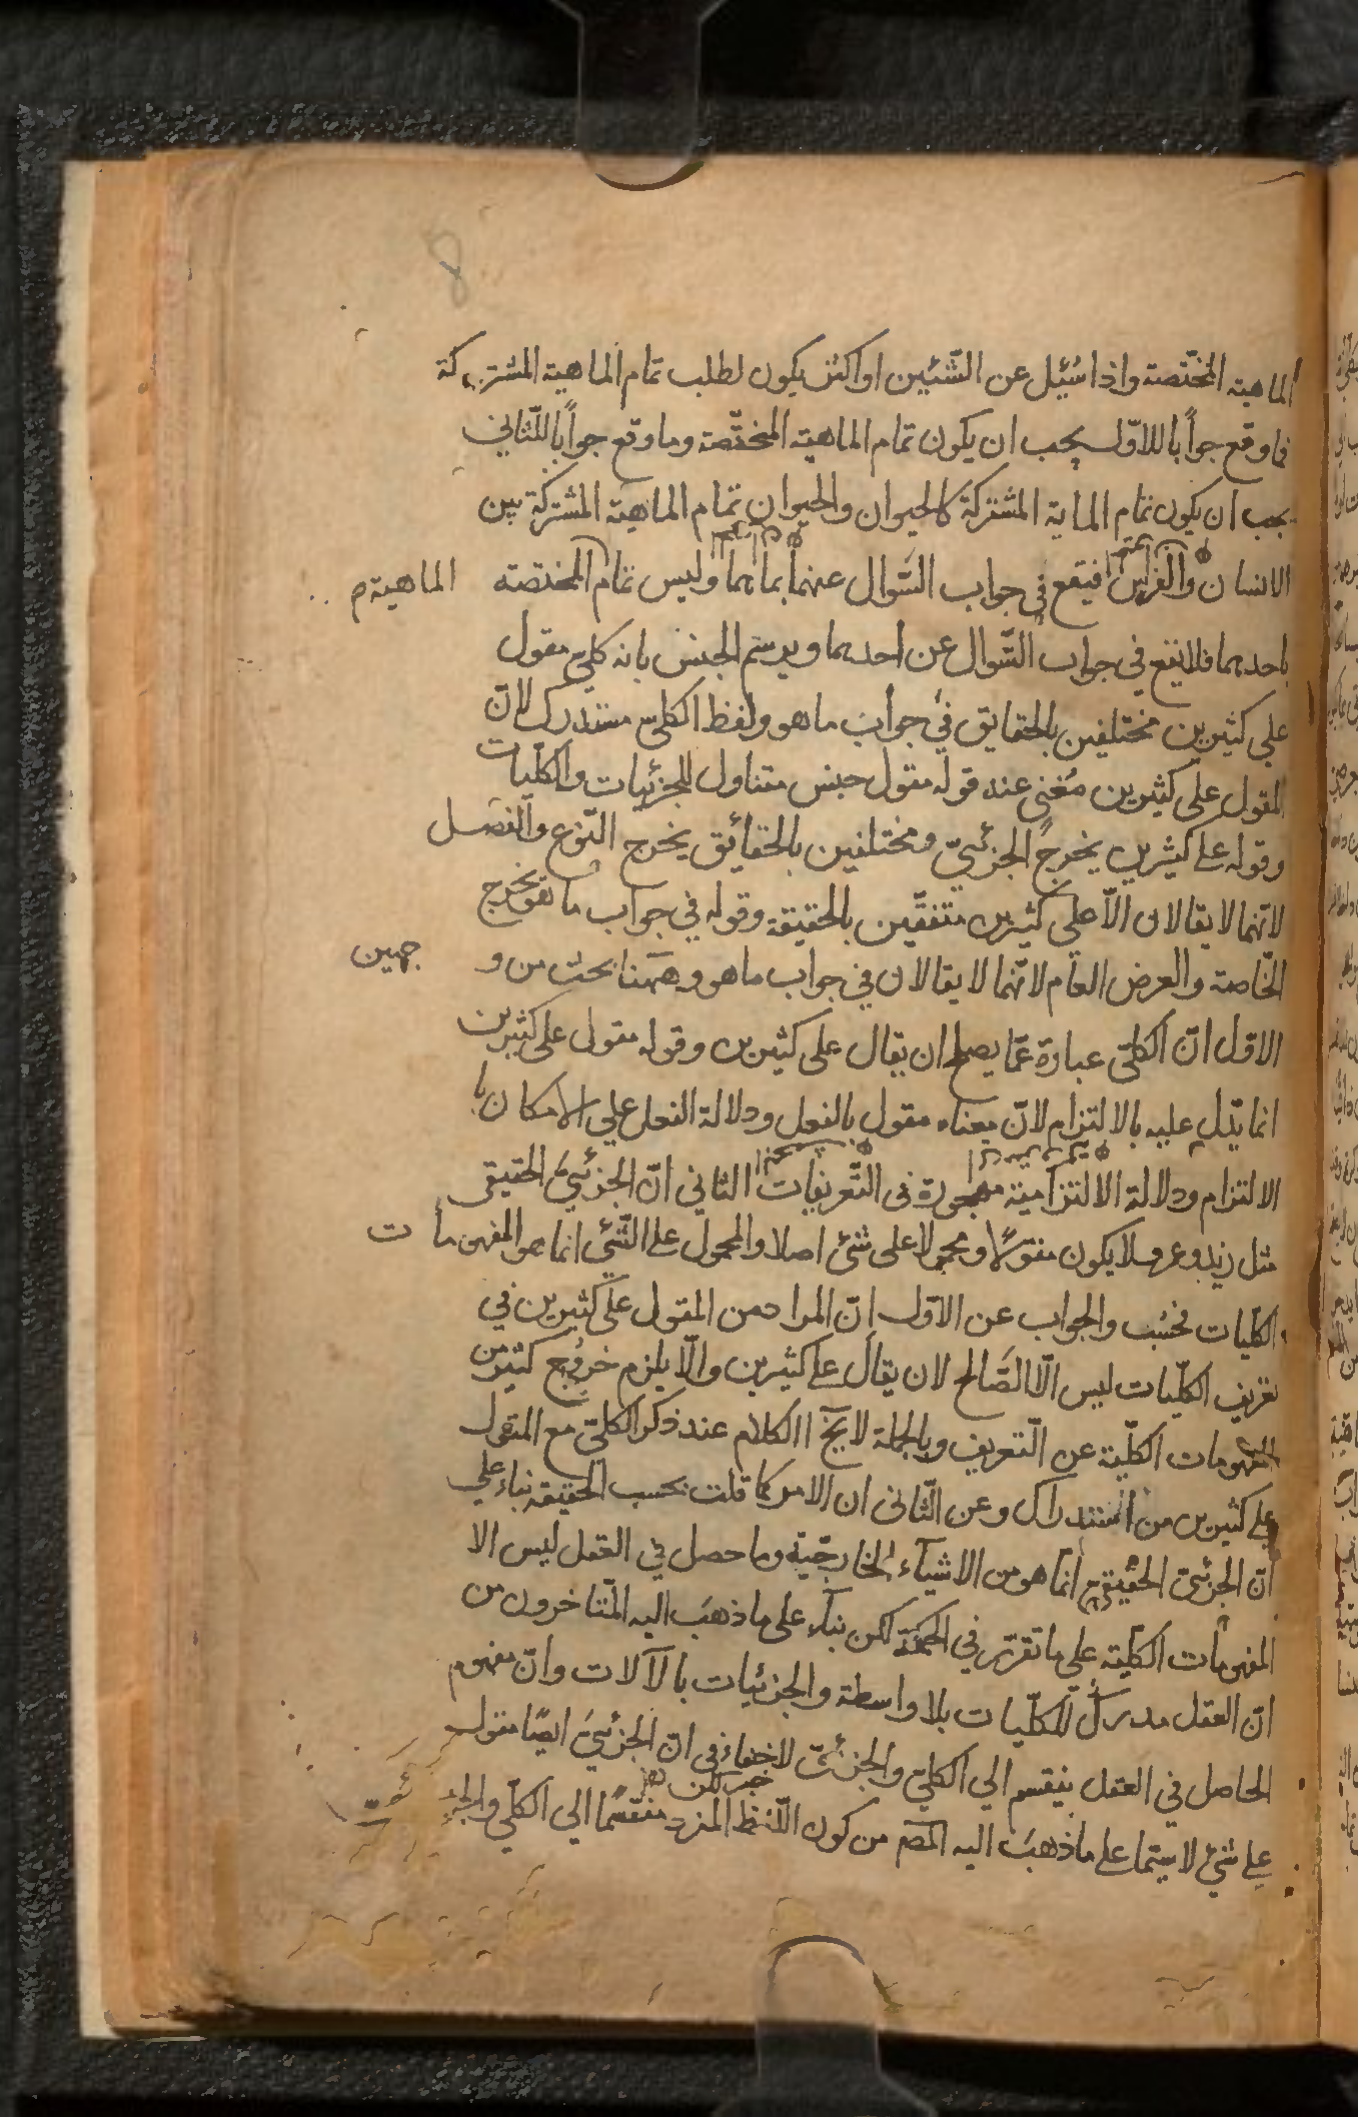 الماهية المختّصة واذا سُئِل عن الشّئين او اكثر يكون لطلب تمام الماهية المشتركة
فما وقع جواًبا للاوّل يجب ان يكون تمام الماهية المختّصة وما وقع جواًبا للثّاني
يجب ان يكون تمام الماية المشتركة كالحيوان والحيوان تمام الماهية المشتركة بين
الانسان والفرس فيقع في جواب السّوال عنهما بما هما وليس تمام المختصة الماهية م
باحدهما فلا يقع في جواب السّوال عن احدهما ويرسم الجنس بانه كليّ مقول
على كثيرين مختلفين بالحقايق في جواب ما هو ولفظ الكلىّ مستدرك لانّ
المقول على كثيرين مُغنى عنه قوله مقول جنس متناول للجزئيات والكلّيات
وقوله على كثيرين يخرج الجزئيّ ومختلفين بالحقائق يخرج النّوع والفصل
لانّهما لا يقالان الّا على كثيرين متفقّين بالحقيقة وقوله في جواب ما هو يخرج
الخّاصة والعرض العام لانّهما لا يقالان في جواب ما هو وههنا بحث من و جهين
الاول انّ الكلّى عبارة عمّا يصلح ان يقال على كثيرين وقوله مقول على كثيرين
انما يدّل عليه بالالتزام لانّ معناه مقول بالفعل ودلالة الفعل على الامكان با
الالتزام ودلالة الالتزامية مهجورة فى التّعريفات الثانى انّ الجزئيّ الحقيقى
مثل زيد وعمرو لا يكون مقولًا ومحمولا على شئ اصلا والمحمول على الشّئ انما هو المفهوما ت
الكلّيات فحسُب والجواب عن الاوّل انّ المراد من المقول على كثيرين في
تعريف الكلّيات ليس الّا الصّالح لان يقال على كثيرين والّا يلزم خروج كثير من
المفهومات الكلّية عن التّعريف وبالجملة لا يخ الكلام عند ذكر الكلىّ مع المقول
على كثيرين من استدراك وعن الثّانى ان الامر كما قلت بحسب الحقيقة بناء على
انّ الجزئىّ الحقيقى انما هو من الاشياء الخارجّية وما حصل في العقل ليس الا
المفهومات الكليّة على ما تقرّر في الحكمة لكن بناء على ما ذهب اليه المتّاخرون من
انّ العقل مدرك للكلّيات بلا واسطة والجزئيات بالآلات وانّ مفهوم
الحاصل في العقل ينقسم الي الكلّيّ والجزئىّ لا خفاء في انّ الجزئيّ ايضًا مقول
على شئ لا سيّما على ما ذهب اليه المصّ من كون اللّفظ المفرد منقسمًا الي الكلّي والجز